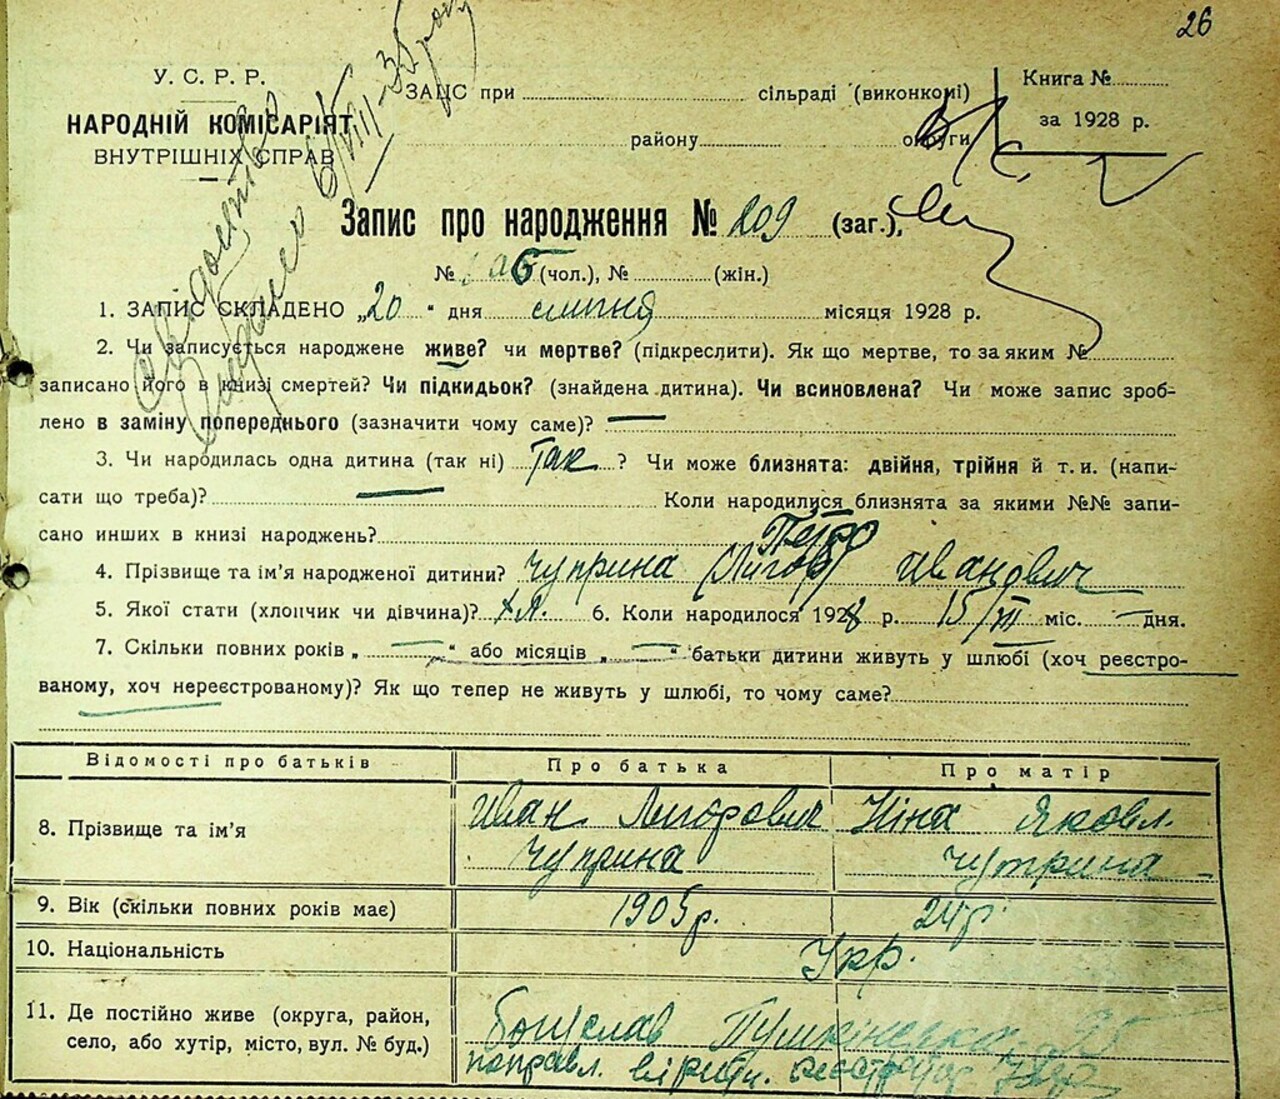 26
У. С. Р. Р.
НАРОДНІЙ КОМІСАРІЯТ
ВНУТРІШНІХ СПРАВ
ЗАЦС при сільраді (виконкомі)
району округи
Книга №
за 1928 р.
Запис про народження № 209 (заг.),
№ (чол.), № (жін.)
1. ЗАПИС СКЛАДЕНО „20“ дня липня місяця 1928 р.
2. Чи записується народжене живе? чи мертве? (підкреслити). Як що мертве, то за яким №
записано його в книзі смертей? Чи підкидьок? (знайдена дитина). Чи всиновлена? Чи може запис зроб-
лено в заміну попереднього (зазначити чому саме)? —
3. Чи народилась одна дитина (так ні) Так ? Чи може близнята: двійня, трійня й т. и. (напи-
сати що треба)? — Коли народилися близнята за якими №№ запи-
сано инших в книзі народжень?
Петро
4. Прізвище та ім’я народженої дитини? Чуприна Иванович
5. Якої стати (хлопчик чи дівчина)? хл. 6. Коли народилося 1928 р. 15/VII міс. — дня.
7. Скільки повних років „ — “ або місяців „ — “ батьки дитини живуть у шлюбі (хоч реєстро-
ваному, хоч нереєстрованому)? Як що тепер не живуть у шлюбі, то чому саме?
Відомості про батьків Про батька Про матір
8. Прізвище та ім’я Иван Ніна Яковл.
Чуприна Чуприна
9. Вік (скільки повних років має) 1905 р. 24 р.
10. Національність Укр.
11. Де постійно живе (округа, район,
село, або хутір, місто, вул. № буд.)
Богуслав Пушкінська